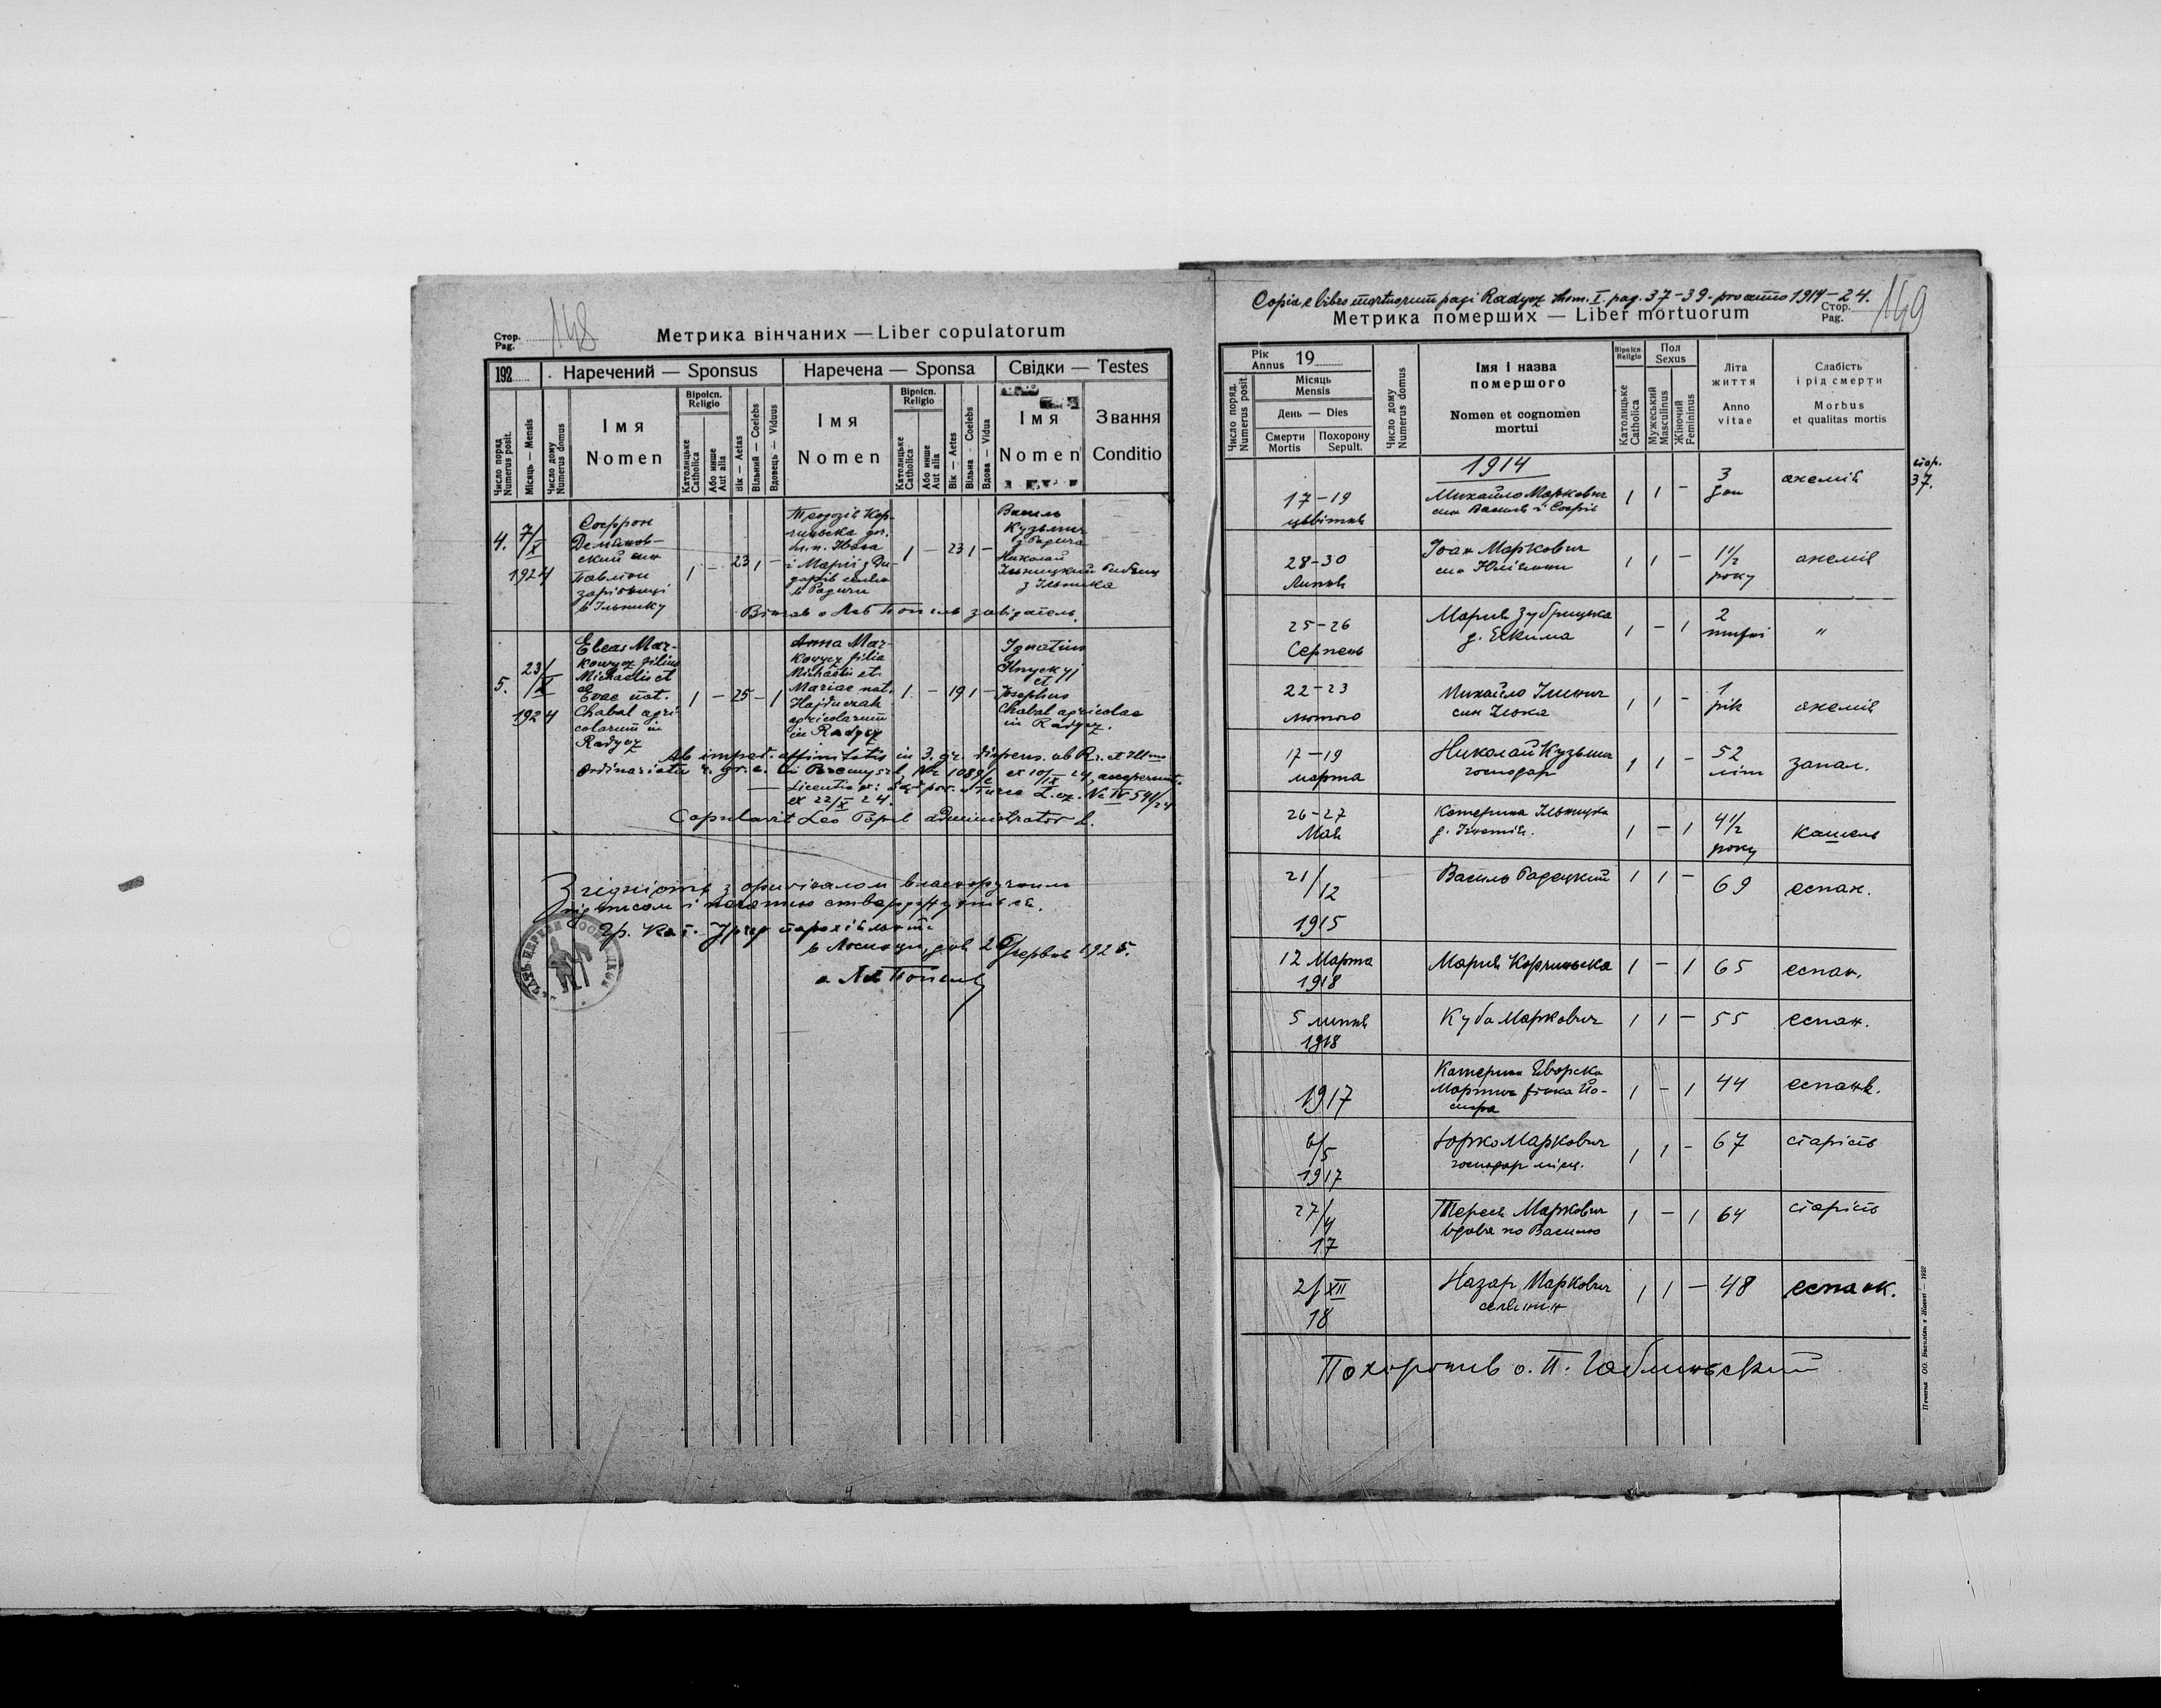 Стор.
Pag.
148
Метрика вінчаних — Liber copulatorum
192
Наречений — Sponsus
Наречена — Sponsa
Свідки — Testes
Число поряд
Numerus posit.
Місяць — Mensis
Число дому
Numerus domus
Імя
Nomen
Віроісп.
Religio
Католицьке
Catholica
Або инше
Aut alia
Вік — Aetas
Вільний — Coelebs
Вдовець — Viduus
Імя
Nomen
Віроісп.
Religio
Католицьке
Catholica
Або инше
Aut alia
Вік — Aetes
Вільна — Coelebs
Вдова — Vidua
Імя
Nomen
Звання
Conditio
4.
7/X
1924
Софрон
ский син
Павліни
в Ільнику
1 — 23 1 —
і Марії з
в Радичи
1 — 23 1 —
Василь
Кузьмич
з Радича
Николай
Ільницкий
з Ільника
Вінчав о Лев Попель завідатель.
5.
23/X
1924
Eleas Mar-
kowycz filius
Michaelis et
Evae nat.
Chabal agri-
colarum in
Radycz
1 — 25 — 1
Anna Mar-
kowycz filia
Michaelis et
Mariae nat.
Hajduczak
agricolarum
in Radycz
1. — 19 1 —
Ignatius
Hnyckyj
et
Josephus
Chabal agricolae
in Radycz.
Ab imped. affinitatis in 3. gr. dispens. ab R. et Illmo
Ordinariatu r. gr. c. in Peremyszl, Nr 1089/ ex 10/IX 24 acceperunt.
Licentia pol. Turce L. cz. No IV 541/24
ex 22/X 24.
Copulavit Leo Popel administrator
Згідність з оригіналом власноручним
підписом і печатею стверджується.
Гр. кат. Уряд парохіяльний
в Лосинци, дня 26 червня 1925.
о Лев Попель
Copia e libro mortuorum pagi Radycz thom. I. pag. 37-39. pro anno 1914-24.
Метрика померших — Liber mortuorum
Стор.
Pag.
149
Рік
Annus
19
Число поряд.
Numerus posit.
Місяць
Mensis
День — Dies
Смерти
Mortis
Похорону
Sepult.
Число дому
Numerus domus
Імя і назва
померш​ого
Nomen et cognomen
mortui
Віроісп.
Religio
Католицьке
Catholica
Пол
Sexus
Мужеський
Masculinus
Жіночий
Femininus
Літа
життя
Anno
vitae
Слабість
і рід смерти
Morbus
et qualitas mortis
1914
стор.
37.
17-19
цьвітня
Михайло Маркович
син Василя і Софії
1 1 —
3
дни
анемія
28-30
Липня
Іоан Маркович
син Юліянни
1 1 —
1 1/2
року
анемія
25-26
Серпень
Мария Зубрицька
д. Екима
1 — 1
2
тижні
"
22-23
лютого
Михайло Ількич
син Ілька
1 1 —
1
рік
анемія
17-19
марта
Николай Кузьмич
господар
1 1 —
52
літ
запал.
26-27
Мая
Катерина Ільницка
д. Ігнатія.
1 — 1
4 1/2
року
кашель
21/12
1915
Василь Радецкий
1 1 —
69
еспан.
12 Марта
1918
Мария Корчинська
1 — 1
65
еспан.
5 липня
1918
Куба Маркович
1 1 —
55
еспан.
1917
Катерина Яворска
Мартина жінка Йо-
сифа
1 — 1
44
еспанк.
6/5
1917
Юрко Маркович
господар місц.
1 1 —
67
старість
27/4
17
Тереся Маркович
вдова по Василю
1 — 1
64
старість
2/XII
18
Назар Маркович
селянин
1 1 —
48
еспанк.
Похоронив о. П. Яблиньский